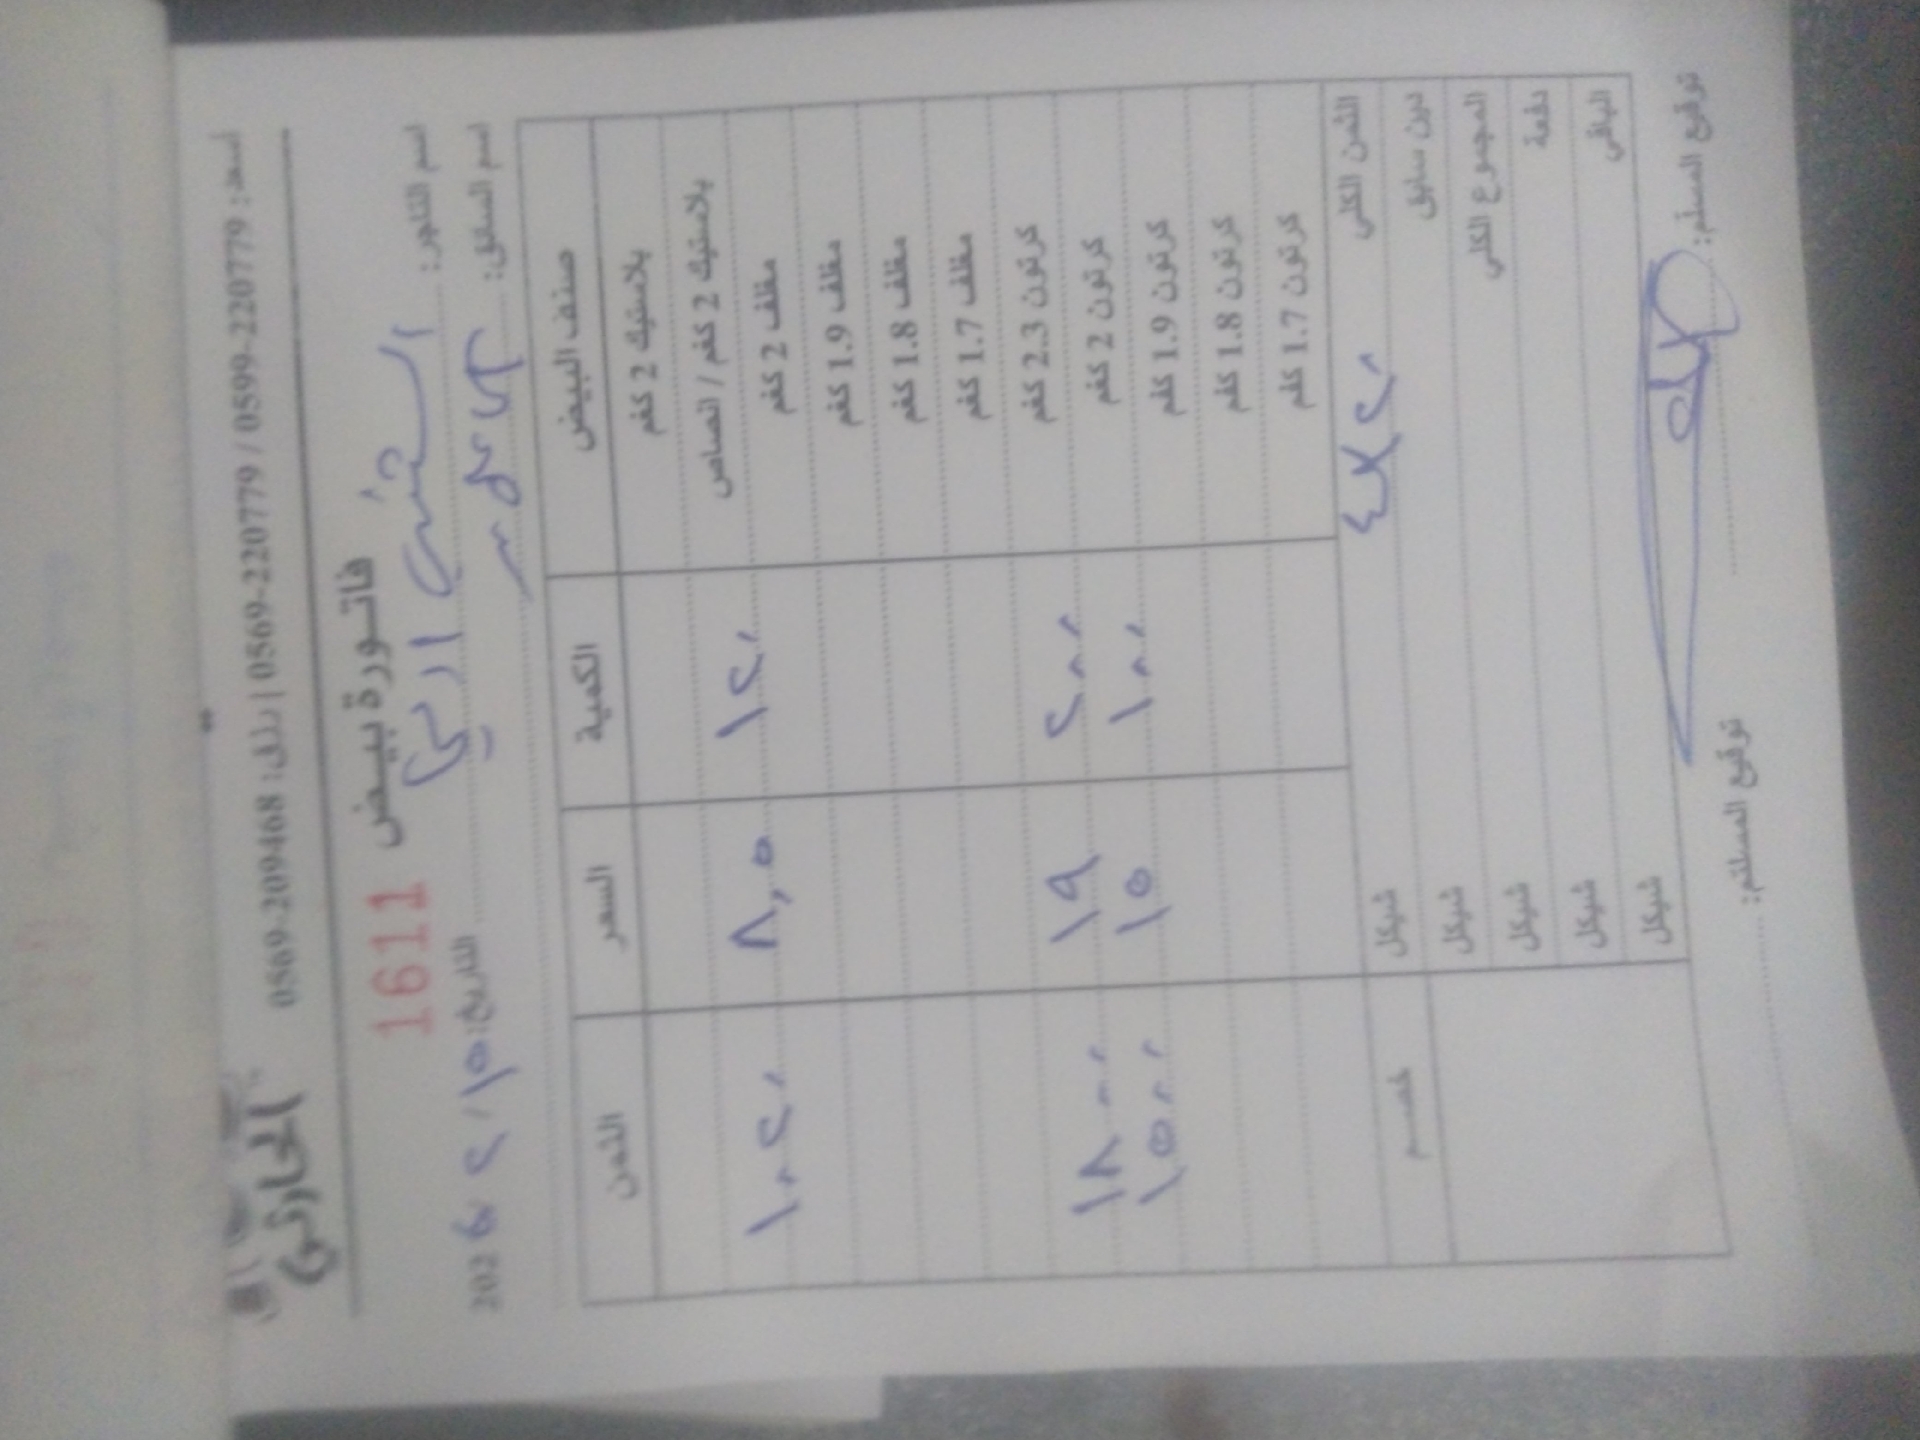 الحارثي
أسعد: 0599-2207779 / 0569-220779 | دلف: 0569-209468
فاتورة بيض
1611
اسم التاجر:
التاريخ: ١٥ / ٢ / 2026
اسم السائق:
صنف البيض الكمية السعر الثمن
بلاستيك 2 كغم
بلاستيك 2 كغم / انصاص
مغلف 2 كغم ١٢٠ ٨,٥ ١٠٢٠
مغلف 1.9 كغم
مغلف 1.8 كغم
مغلف 1.7 كغم
كرتون 2.3 كغم
كرتون 2 كغم ٢٠٠ ١٩ ١٨٠٠
كرتون 1.9 كغم ١٠٠ ١٥ ١٥٠٠
كرتون 1.8 كغم
كرتون 1.7 كغم
الثمن الكلي شيكل خصم
دين سابق شيكل
المجموع الكلي شيكل
دفعة شيكل
الباقي شيكل
توقيع المسلم:
توقيع المستلم: